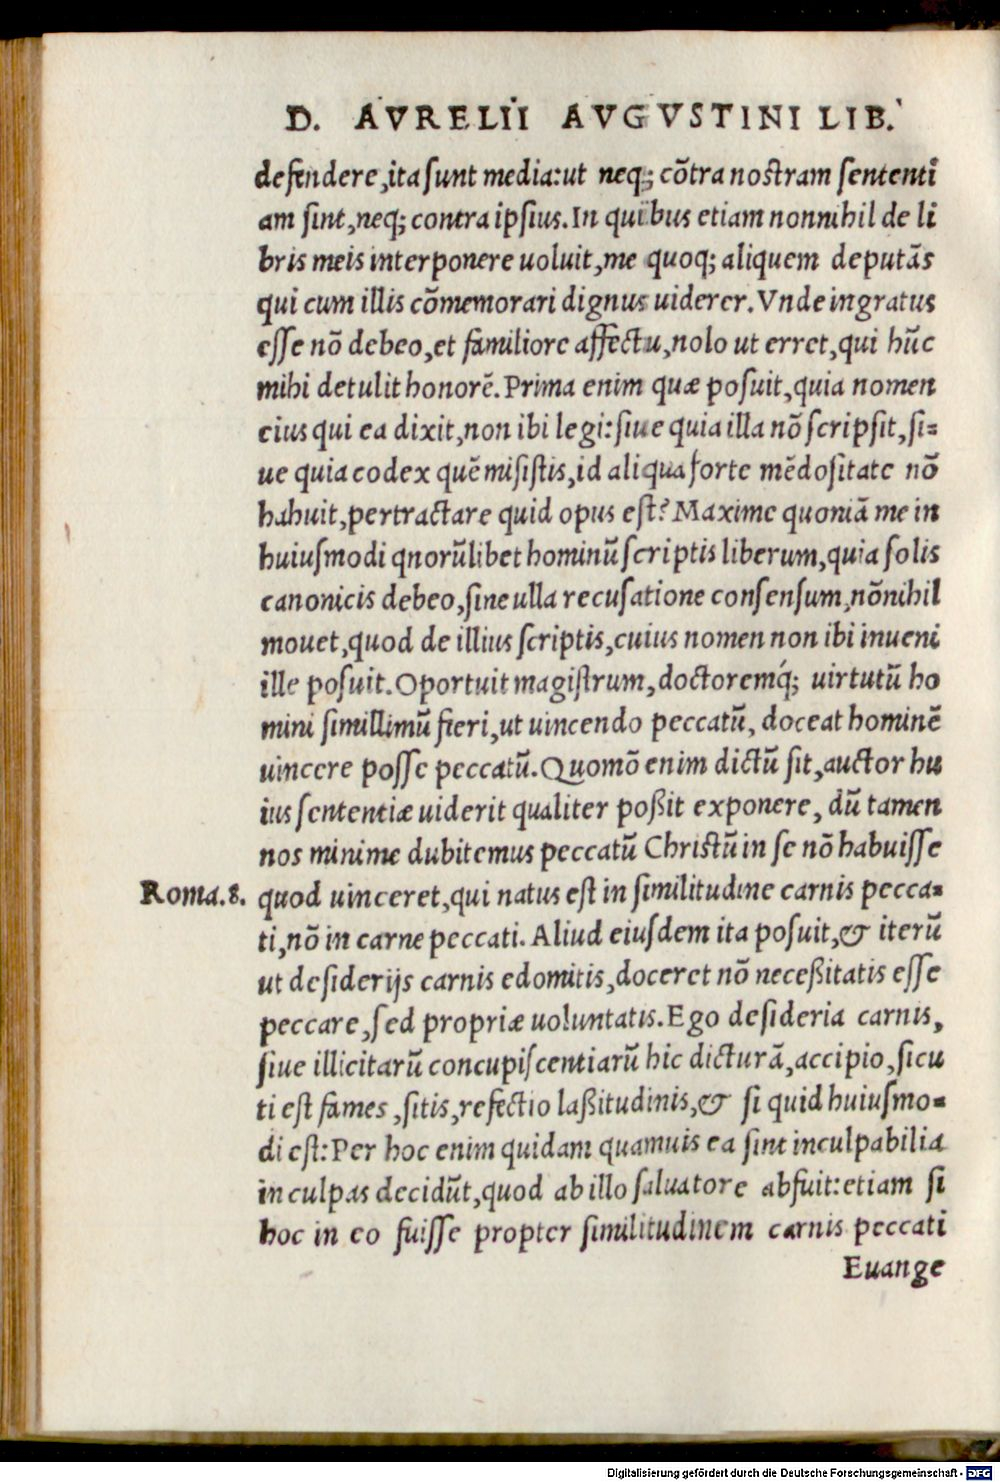 D. AVRELII AVGVSTINI LIB.
defendere,ita sunt media:ut neq; cōtra nostram sententi
am sint,neq; contra ipsius.In quibus etiam nonnihil de li
bris meis interponere uoluit,me quoq; aliquem deputās
qui cum illis cōmemorari dignus uiderer.Vnde ingratus
esse nō debeo,et familiore affectu,nolo ut erret,qui hūc
mihi detulit honorē.Prima enim quæ posuit,quia nomen
eius qui ea dixit,non ibi legi:siue quia illa nō scripsit,si=
ue quia codex quē misistis,id aliqua forte mēdositate nō
habuit,pertractare quid opus est? Maxime quoniā me in
huiusmodi qnorūlibet hominū scriptis liberum,quia solis
canonicis debeo,sine ulla recusatione consensum,nōnihil
mouet,quod de illius scriptis,cuius nomen non ibi inueni
ille posuit.Oportuit magistrum,doctoremq́; uirtutū ho
mini simillimū fieri,ut uincendo peccatū, doceat hominē
uincere posse peccatū.Quomō enim dictū sit,auctor hu
ius sententiæ uiderit qualiter poßit exponere, dū tamen
nos minime dubitemus peccatū Christū in se nō habuisse
Roma.8. quod uinceret,qui natus est in similitudine carnis pecca=
ti,nō in carne peccati. Aliud eiusdem ita posuit,& iterū
ut desiderijs carnis edomitis,doceret nō neceßitatis esse
peccare,sed propriæ uoluntatis.Ego desideria carnis,
siue illicitarū concupiscentiarū hic dicturā,accipio,sicu
ti est fames ,sitis,refectio laßitudinis,& si quid huiusmo=
di est:Per hoc enim quidam quamuis ea sint inculpabilia
in culpas decidūt,quod ab illo saluatore abfuit:etiam si
hoc in eo fuisse propter similitudinem carnis peccati
Euange
Digitalisierung gefördert durch die Deutsche Forschungsgemeinschaft - DFG